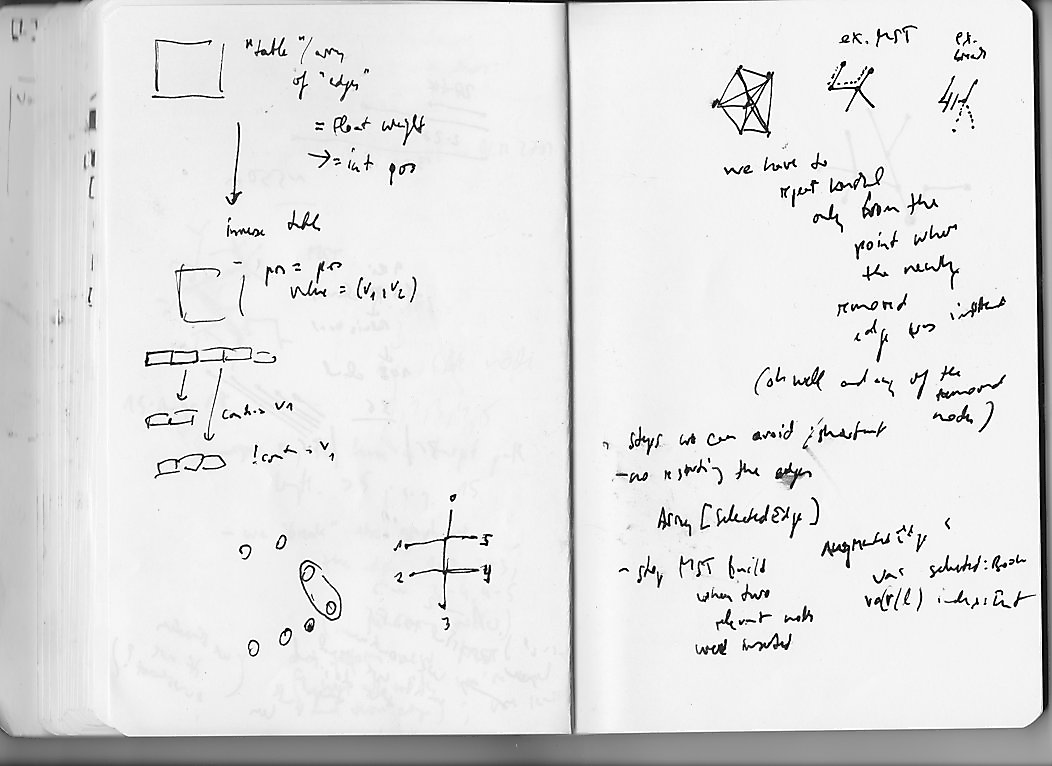 "table"/array
of "edges"
= float weight
→ = int pos
inverse table
pos = pos
value = (v1, v2)
contains v1
! contains v1
1 5
2 4
3
ex. MST
ex.
we have to
repeat
only from the
point where
the newly
removed
edge was
(oh well and any of the
removed
nodes)
- steps we can avoid / shortcut
- no resorting the edges
Array [SelectedEdge]
- stop MST build
when two
relevant nodes
were inserted
AugmentedEdge {
var selected: Boolean
index: Int